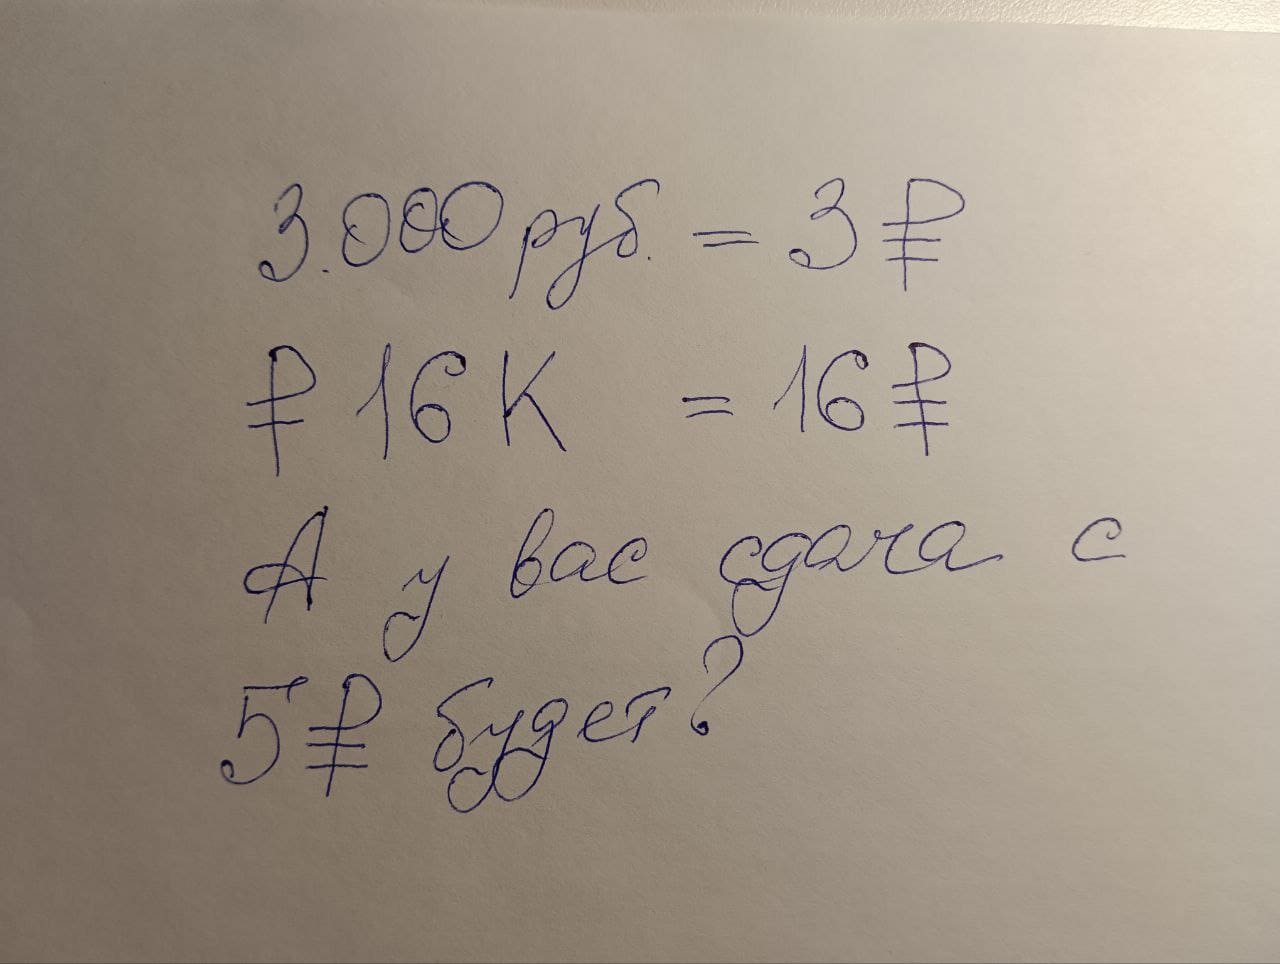 3.000 руб. = 3 ₽
₽ 16 К = 16 ₽
А у вас сдача с
5 ₽ будет?